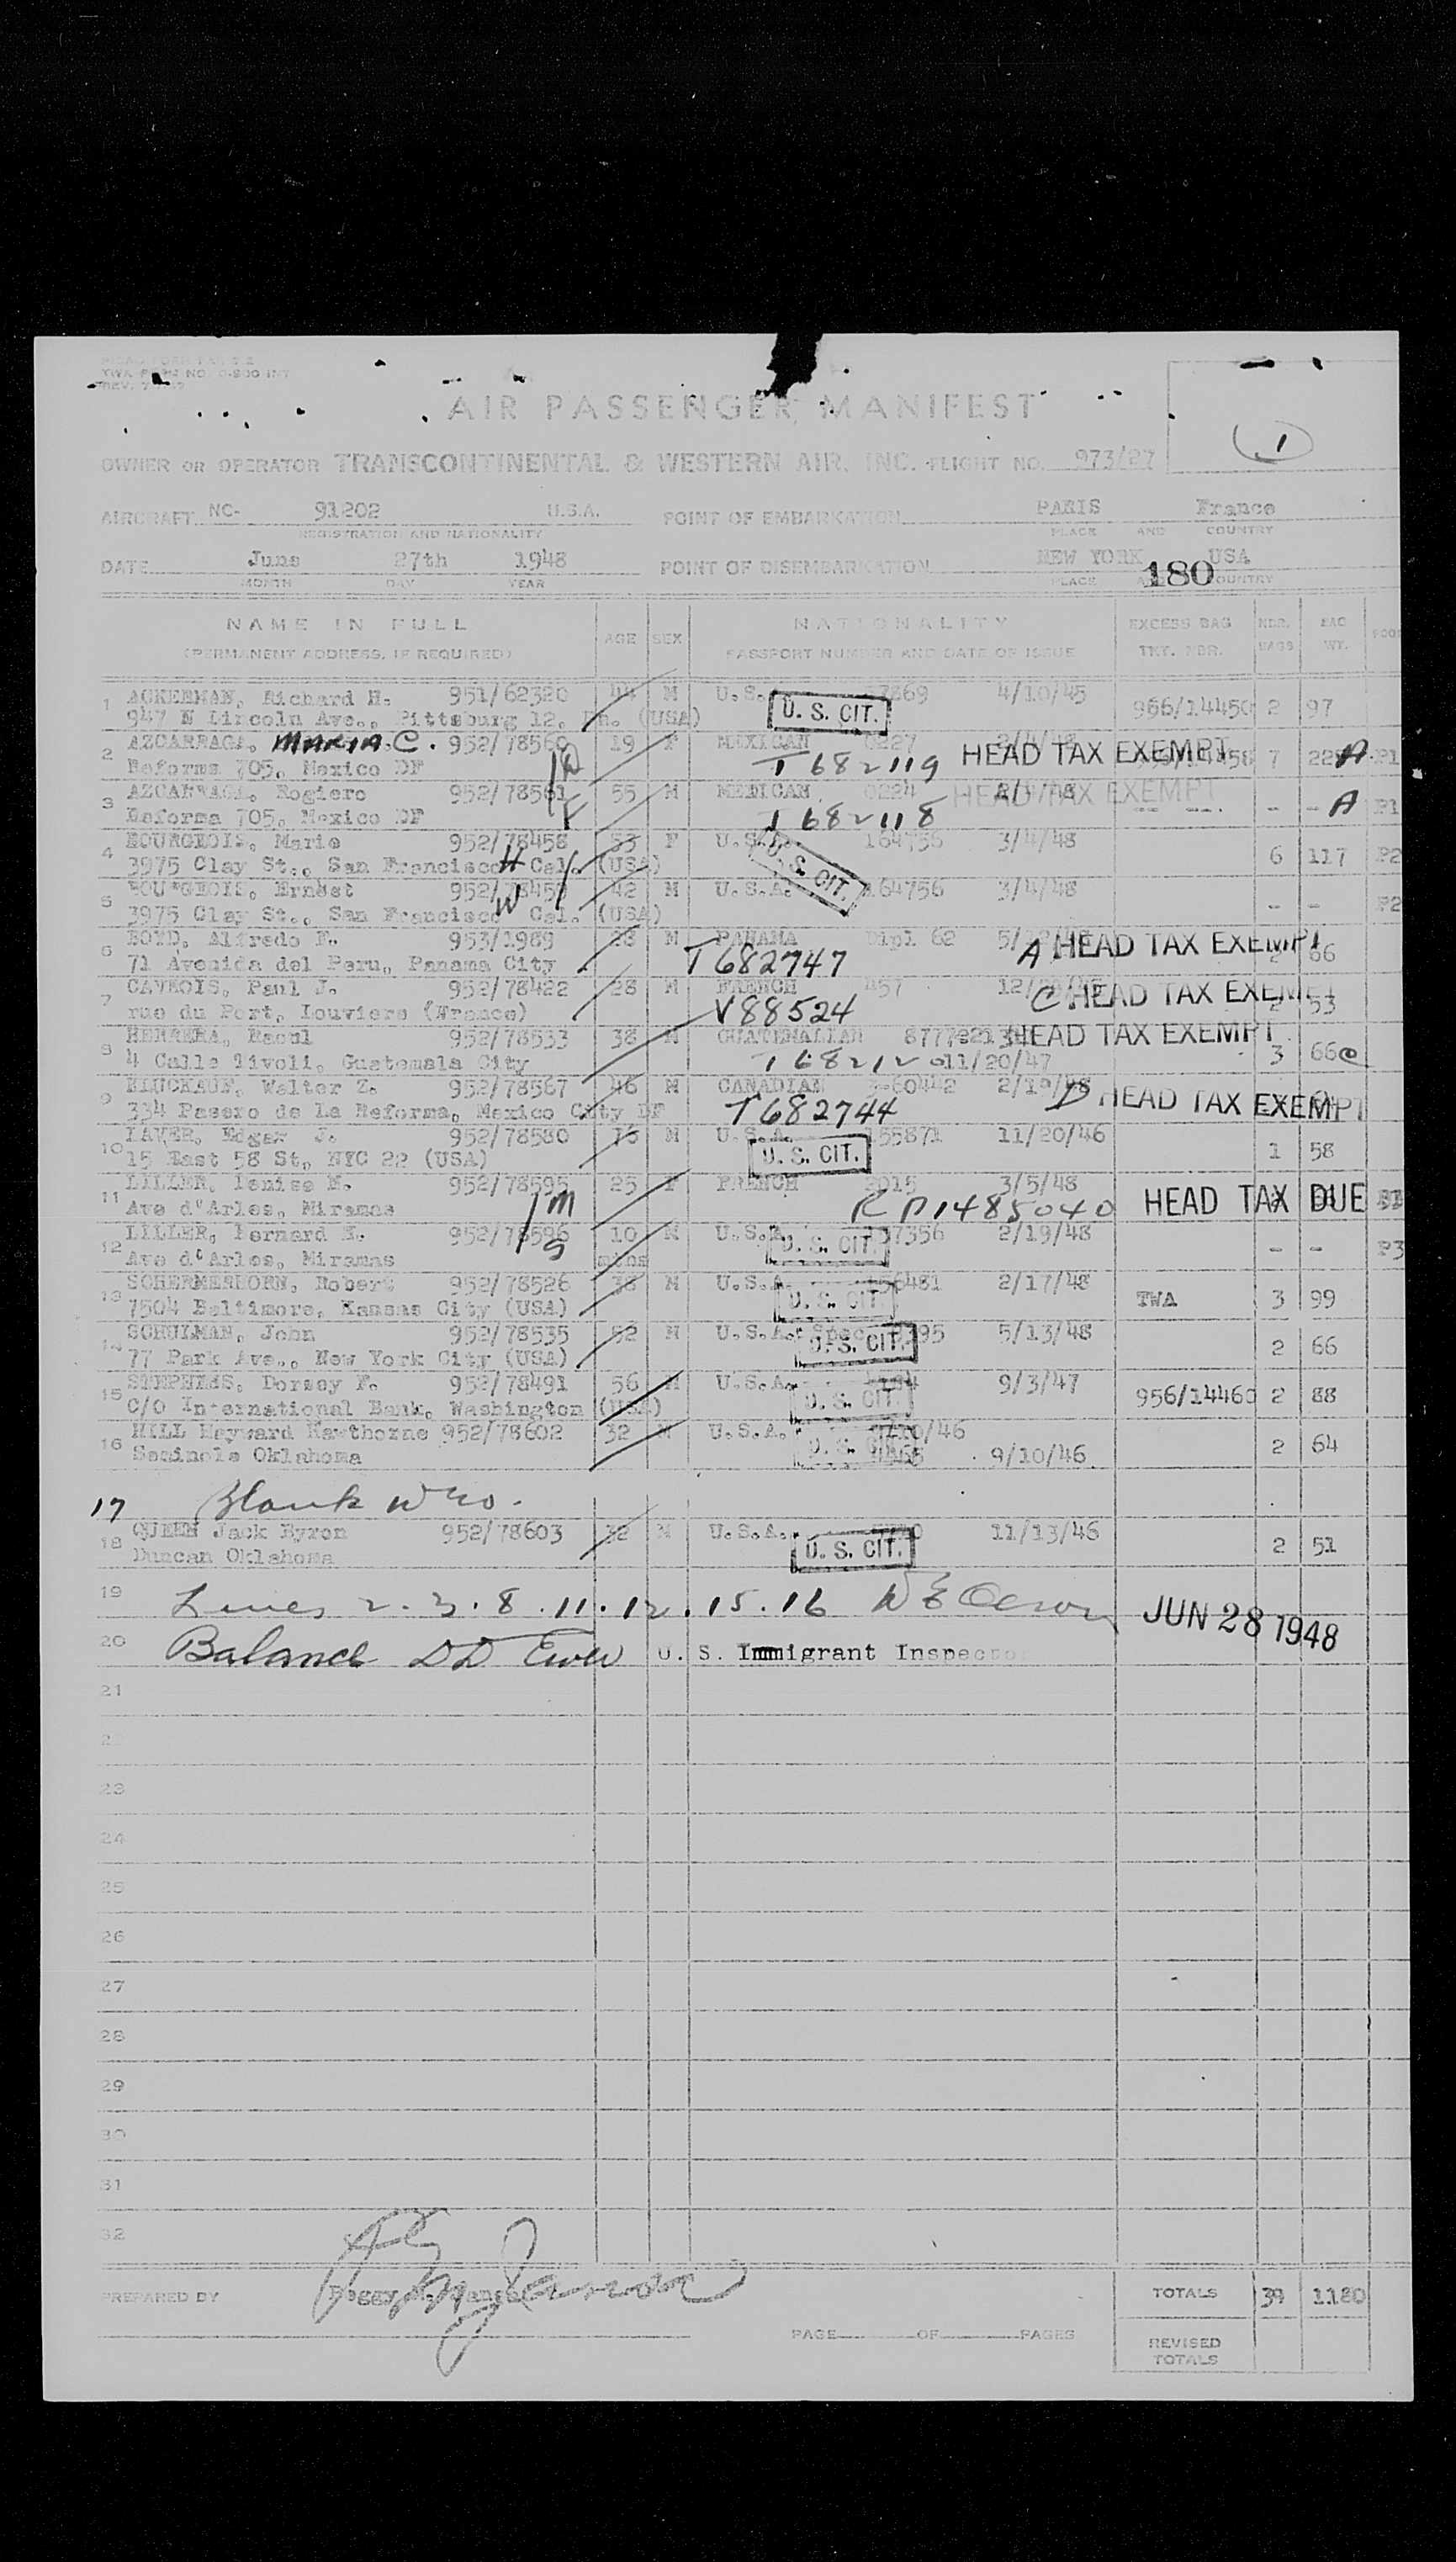 TWA FORM NO. 0-800 INT
AIR PASSENGER MANIFEST
1
OWNER OR OPERATOR TRANSCONTINENTAL & WESTERN AIR, INC. FLIGHT NO. 973/27
AIRCRAFT NC- 91202 U.S.A. POINT OF EMBARKATION PARIS France
REGISTRATION AND NATIONALITY PLACE AND COUNTRY
DATE June 27th 1948 POINT OF DISEMBARKATION NEW YORK USA
MONTH DAY YEAR PLACE 180 COUNTRY
NAME IN FULL AGE SEX NATIONALITY EXCESS BAG NBR. BAG
(PERMANENT ADDRESS, IF REQUIRED) PASSPORT NUMBER AND DATE OF ISSUE TKT. NBR. BAGS WT.
1 ACKERMAN, Richard H. 951/62320 44 M U.S. 4/10/45
947 N Lincoln Ave., Pittsburg 12, (USA) U. S. CIT. 966/14450 2 97
2 AZCARRAGA, MARIA C. 952/78560 19 F MEXICAN 0227 HEAD TAX EXEMPT 7 A P1
Reforma 705, Mexico DF T 682119
3 AZCARRAGA, Rogiero 952/78561 55 M MEXICAN 0224 HEAD TAX EXEMPT - - A P1
Reforma 705, Mexico DF T 682118
4 BOURGEOIS, Marie 952/78458 33 F U.S.A. 3/4/48
3975 Clay St., San Francisco H Cal. (USA) U. S. CIT. 6 117 P2
5 BOURGEOIS, Ernest 952/78459 42 M U.S.A. 164756 3/4/48
3975 Clay St., San Francisco W Cal. (USA) - - P2
6 BOYD, Alfredo F. 953/1989 M PANAMA Dipl 62 A HEAD TAX EXEMPT 66
71 Avenida del Peru, Panama City T682747
7 CAVROIS, Paul J. 952/78422 28 M FRENCH 457 C HEAD TAX EXEMPT 53
rue du Port, Louviers (France) V88524
8 HERRERA, Raoul 952/78533 38 M GUATEMALIAN HEAD TAX EXEMPT
4 Calle Tivoli, Guatemala City T 682120 11/20/47 3 66 C
9 KLUCKAUF, Walter Z. 952/78567 46 M CANADIAN D HEAD TAX EXEMPT
334 Pasero de La Reforma, Mexico City DF T682744
10 LAVER, Edgar J. 952/78580 M U.S.A. 155871 11/20/46
15 East 58 St, NYC 22 (USA) U. S. CIT. 1 58
11 LILLER, Denise M. 952/78595 25 F FRENCH 3015 3/5/48 HEAD TAX DUE
Ave d'Arles, Miramas RP1485040
12 LILLER, Bernard M. 952/78596 10 M U.S.A. 2/19/48
Ave d'Arles, Miramas mths U. S. CIT. - - P3
13 SCHERMERHORN, Robert 952/78526 38 M U.S.A. 2/17/48
7504 Baltimore, Kansas City (USA) U. S. CIT. TWA 3 99
14 SCHULMAN, John 952/78535 52 M U.S.A. 5/13/48
77 Park Ave., New York City (USA) U. S. CIT. 2 66
15 STEPHENS, Dorsey F. 952/78491 56 M U.S.A. 9/3/47
C/O International Bank, Washington (USA) U. S. CIT. 956/14460 2 88
16 HILL Hayward Hawthorne 952/78602 32 M U.S.A.
Seminole Oklahoma U. S. CIT. 9/10/46 2 64
17 Blank
18 QUEEN Jack Byron 952/78603 32 M U.S.A. 11/13/46
Duncan Oklahoma U. S. CIT. 2 51
19 Lines 2. 3. 8. 11. 12. 15. 16 JUN 28 1948
20 Balance U. S. Immigrant Inspector
21
23
24
25
26
27
28
29
30
31
32
PREPARED BY Peggy TOTALS 39 1180
PAGE OF PAGES REVISED
TOTALS